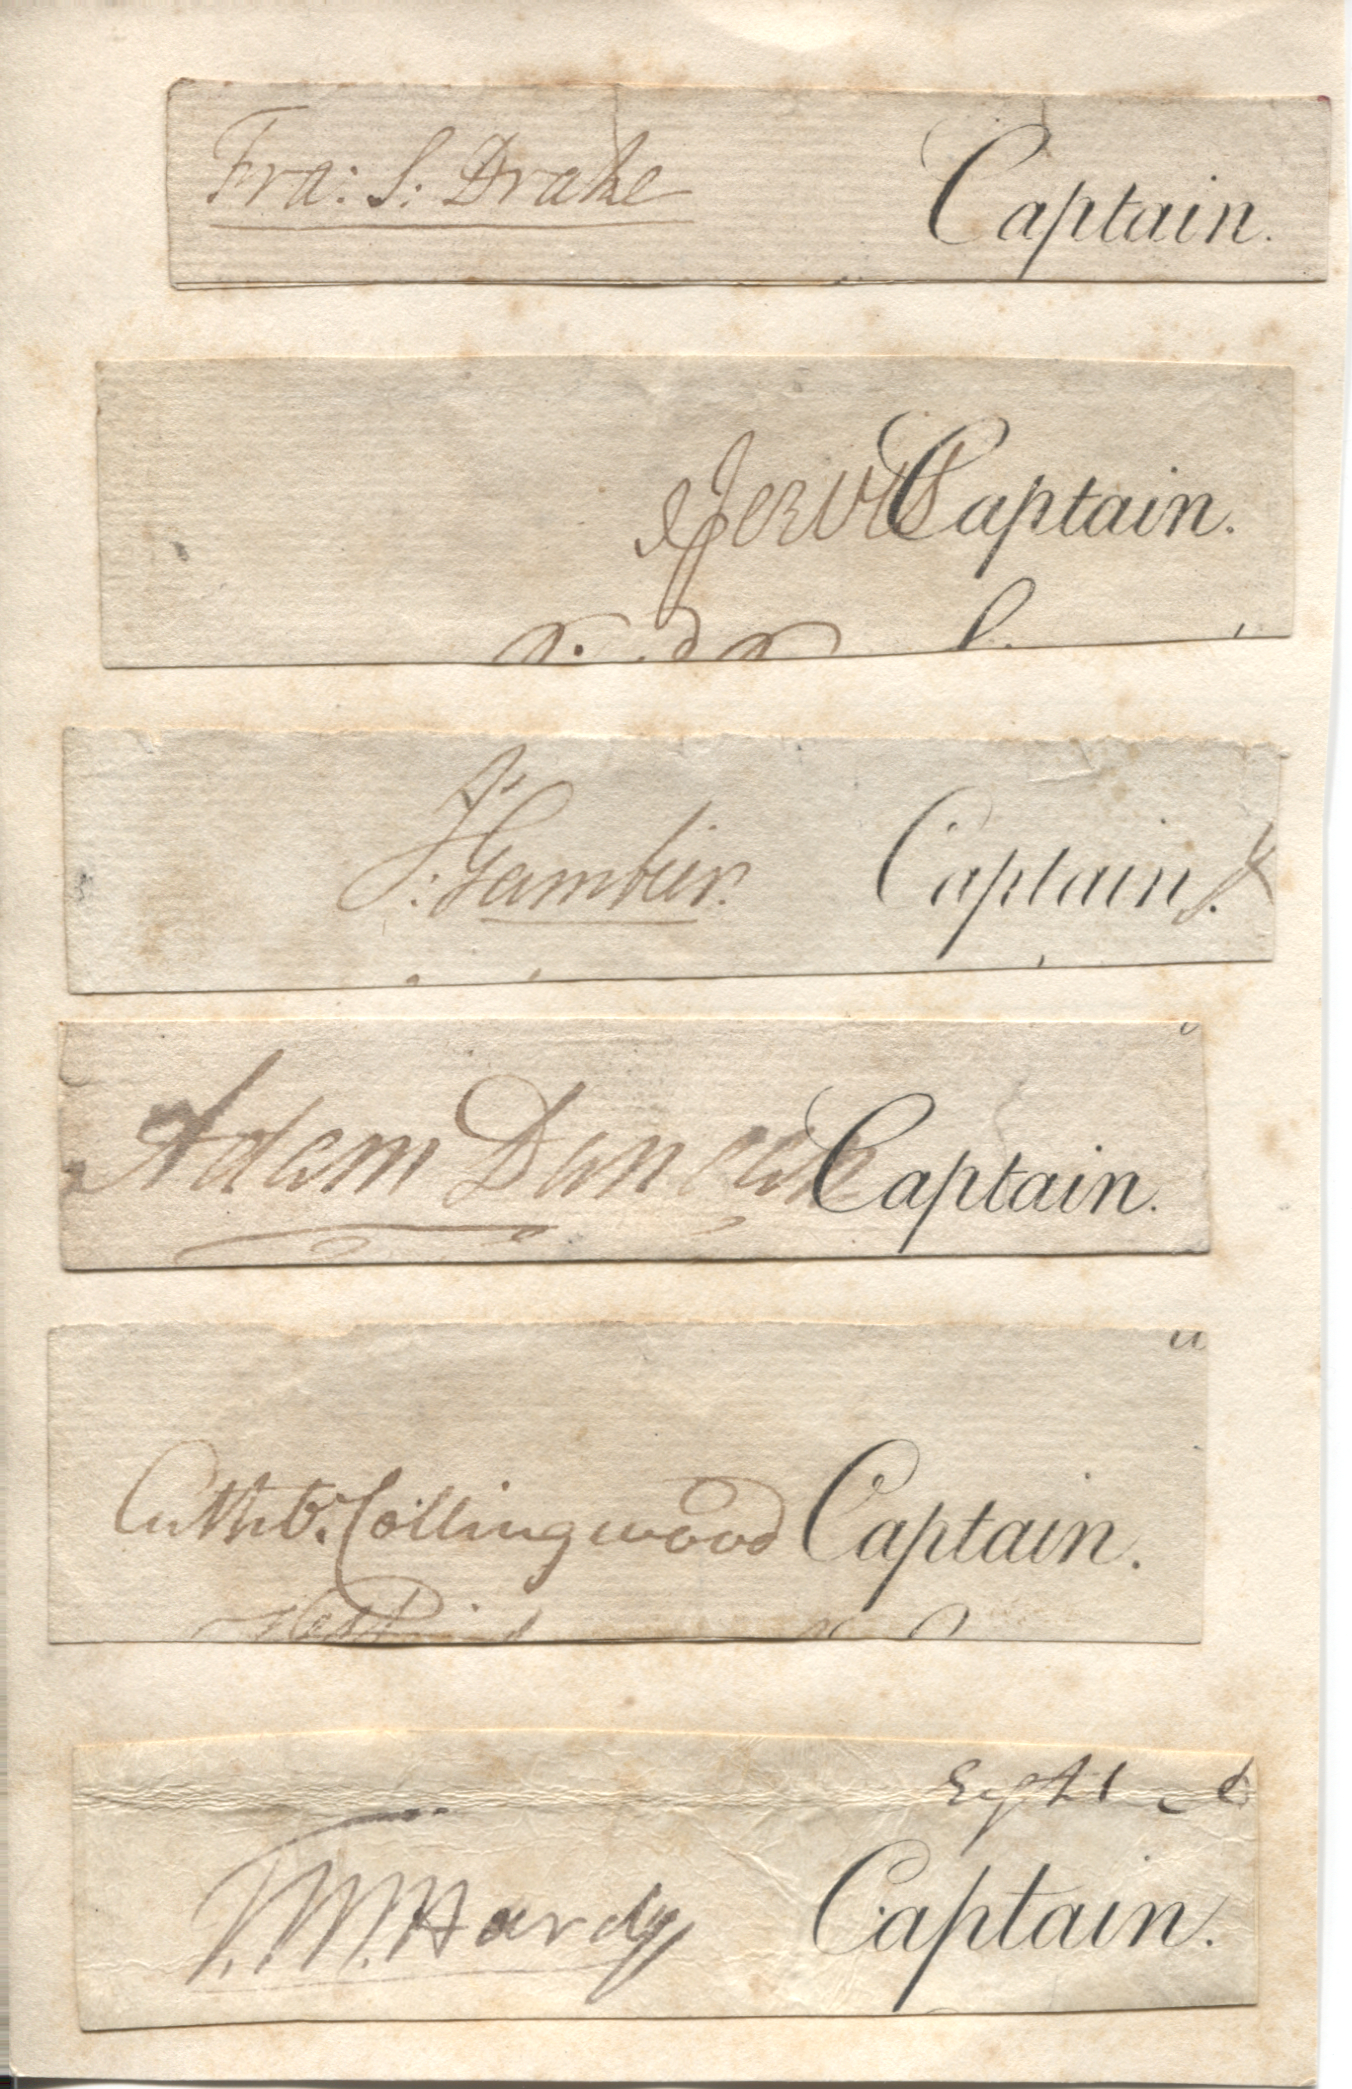 Fra: S. Drake Captain.
J Jervis Captain.
J: Gambier. Captain.
Adam Duncan Captain.
Cuthbt. Collingwood Captain.
T. M. Hardy Captain.